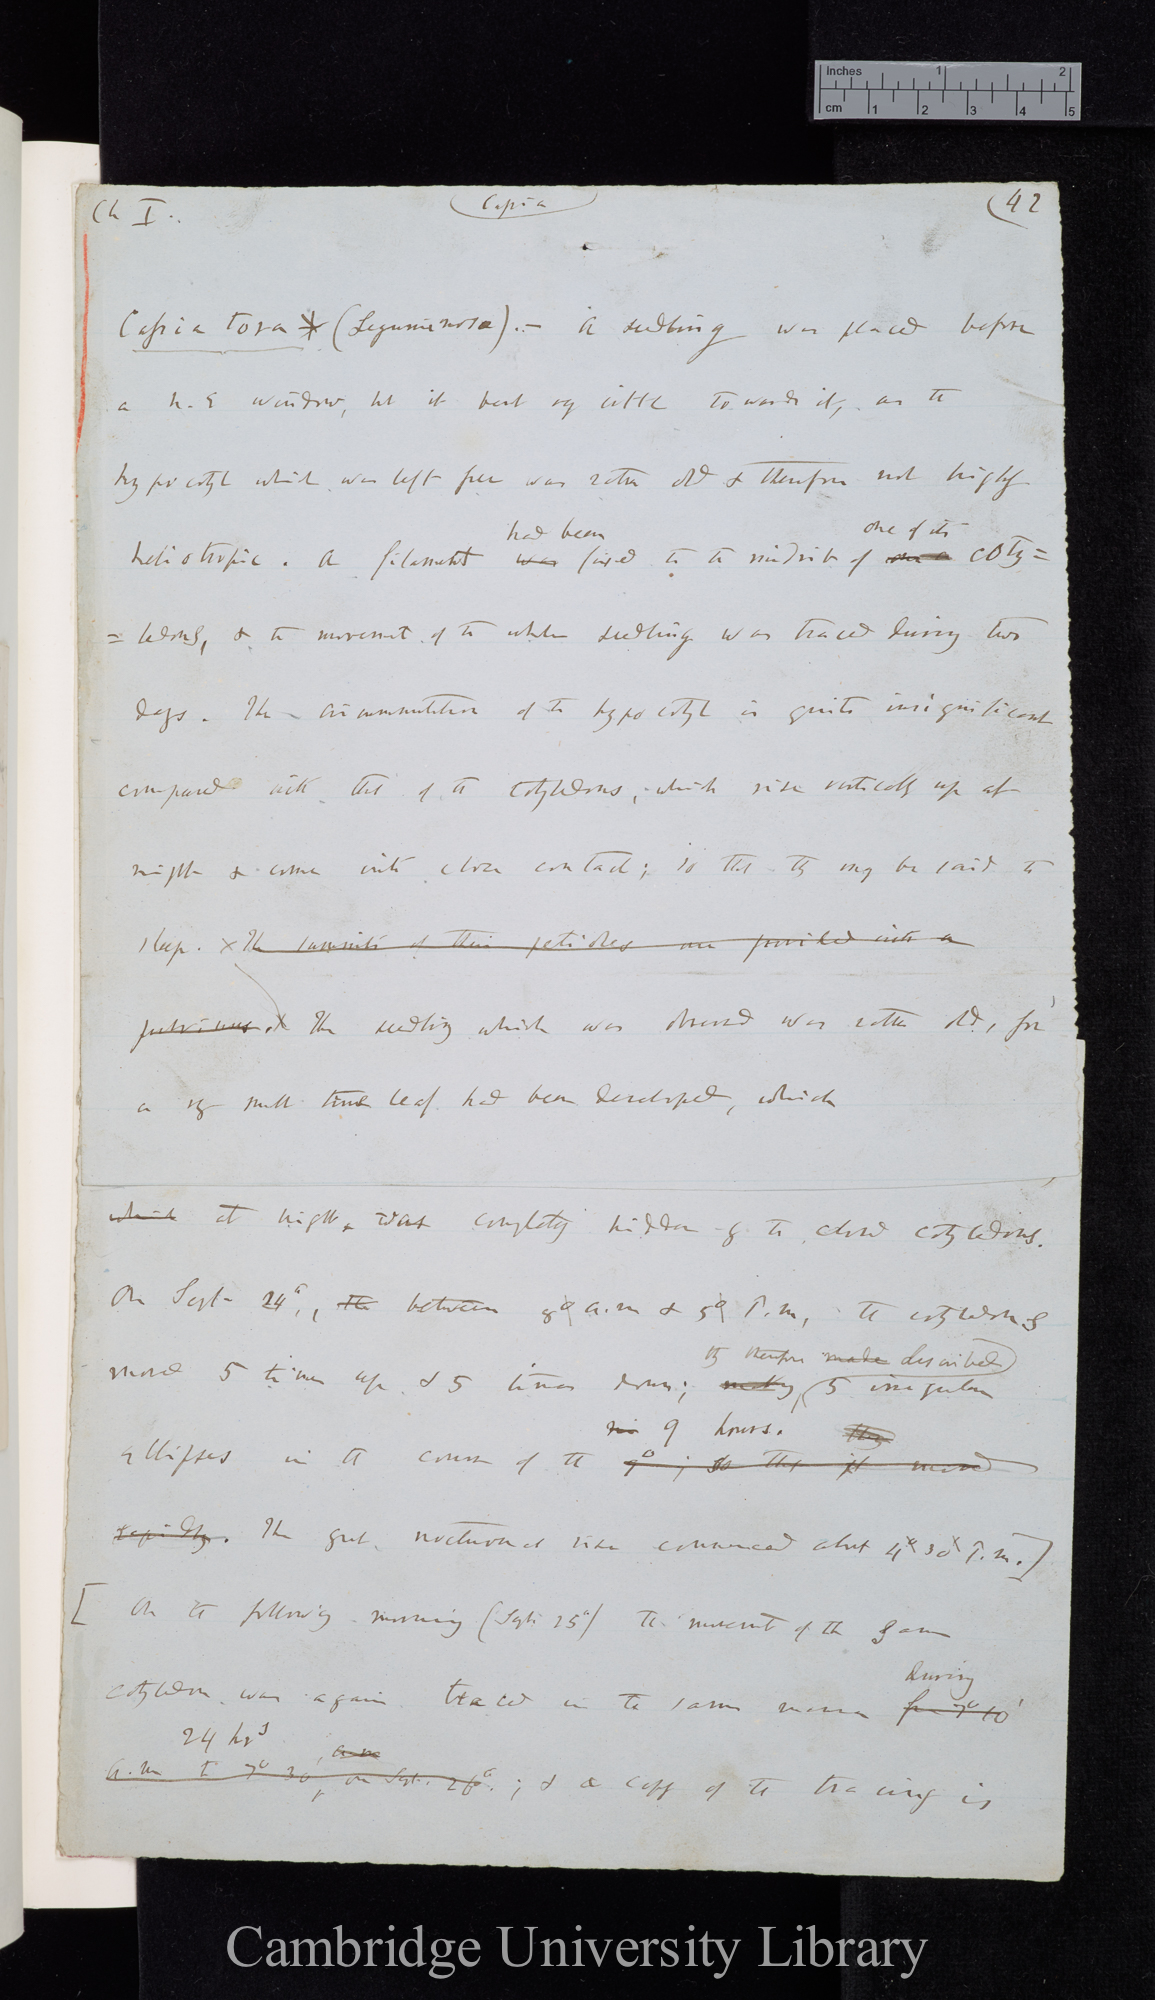 Inches 1 2
cm 1 2 3 4 5
Ch I.
Cassia
(42
Cassia tora * (Leguminosæ).— A seedling was placed before
a N.E window, but it bent very little towards it, as the
hypocotyl which was left free was rather old & therefore not highly
had been one of its
heliotropic. A filament was fixed to the midrib of one a coty=
=ledons, & the movement of the whole seedling was traced during two
days. The circumnutation of the hypocotyl is quite insignificant
compared with that of the cotyledons, which rise vertically up at
night & come into close contact; so that they may be said to
sleep. x The summits of their petioles are provided with a
pulvinus. x The seedling which was observed was rather old, for
a very small true leaf had been developed, which
which at night was completely hidden by the closed cotyledons.
On Sept 24th, the between 8° a.m & 5° P.m, the cotyledons
they therefore made described
moved 5 times up & 5 times down; making 5 irregular
9 hours. they
ellipses in the course of the 9°; so that it moved
rapidly. The great nocturnal rise commenced about 4° 30' P.m.]
[ On the following morning (Sept 25th) the movement of the same
during
cotyledon was again traced in the same manner for 7° 10'
24 hrs a.m
a.m to 7° 30, on Sept. 26th.; & a copy of the tracing is
Cambridge University Library